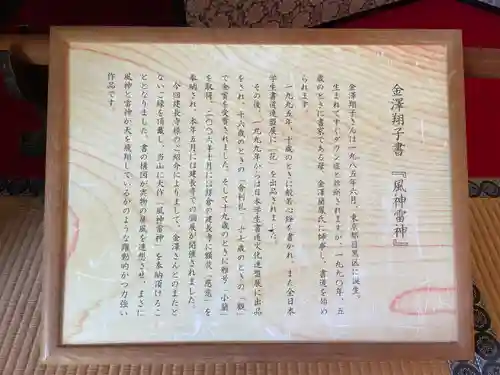 金澤翔子書 『風神雷神』
金澤翔子さんは一九八五年六月、東京都目黒区に誕生。
生まれてすぐダウン症と診断されますが、一九九〇年、五
歳のときに書家である母、金澤蘭鳳氏に師事し、書道を始め
られます。
一九九五年、十歳のときに般若心経を書かれ、また全日本
学生書道連盟展に「花」を出品されました。
その後、一九九九年からは日本学生書道文化連盟展に出品
をされ、十六歳のときの「舎利礼」、十七歳のときの「般」
で金賞を受賞されました。そして十九歳のときに雅号「小蘭」
を取得、二〇〇六年十月には鎌倉の建長寺に額装「慈悲」を
奉納され、本年五月には建長寺での個展が開催されました。
今回建長寺様のご紹介によりまして、金澤さんとのまたと
ないご縁を頂戴し、当山に大作「風神雷神」を奉納頂けるこ
ととなりました。書の構図が実物の屏風を連想させ、まさに
風神と雷神が天を飛翔しているかのような躍動的かつ力強い
作品です。